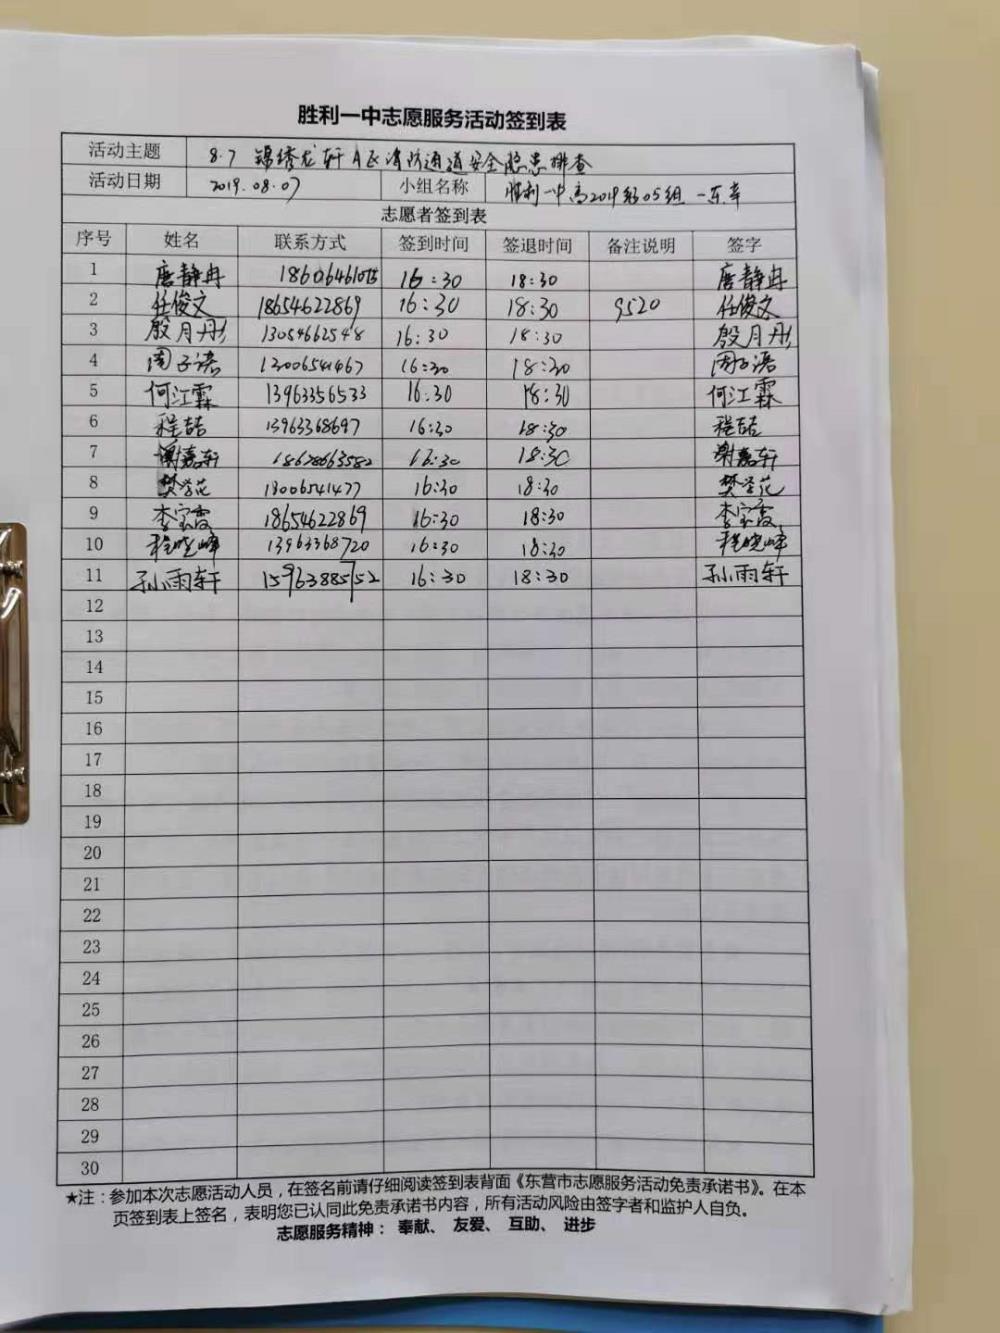 胜利一中志愿服务活动签到表
活动主题 8.7 锦绣龙轩A区消防通道安全隐患排查
活动日期 2019.08.07 小组名称 胜利一中高2019级05组
志愿者签到表
序号 姓名 联系方式 签到时间 签退时间 备注说明 签字
1 唐静冉 16:30 18:30 唐静冉
2 任俊文 18654622869 16:30 18:30 9520 任俊文
3 殷月彤 13054662548 16:30 18:30 殷月彤
4 周子语 16:30 18:30 周子语
5 何江霖 13963356533 16:30 18:30 何江霖
6 程喆 13963368697 16:30 18:30 程喆
7 谢嘉轩 18678663582 16:30 18:30 谢嘉轩
8 16:30 18:30
9 18654622869 16:30 18:30
10 程晓峰 13963368720 16:30 18:30 程晓峰
11 孙雨轩 15963885752 16:30 18:30 孙雨轩
12
13
14
15
16
17
18
19
20
21
22
23
24
25
26
27
28
29
30
★注：参加本次志愿活动人员，在签名前请仔细阅读签到表背面《东营市志愿服务活动免责承诺书》。在本
页签到表上签名，表明您已认同此免责承诺书内容，所有活动风险由签字者和监护人自负。
志愿服务精神： 奉献、 友爱、 互助、 进步